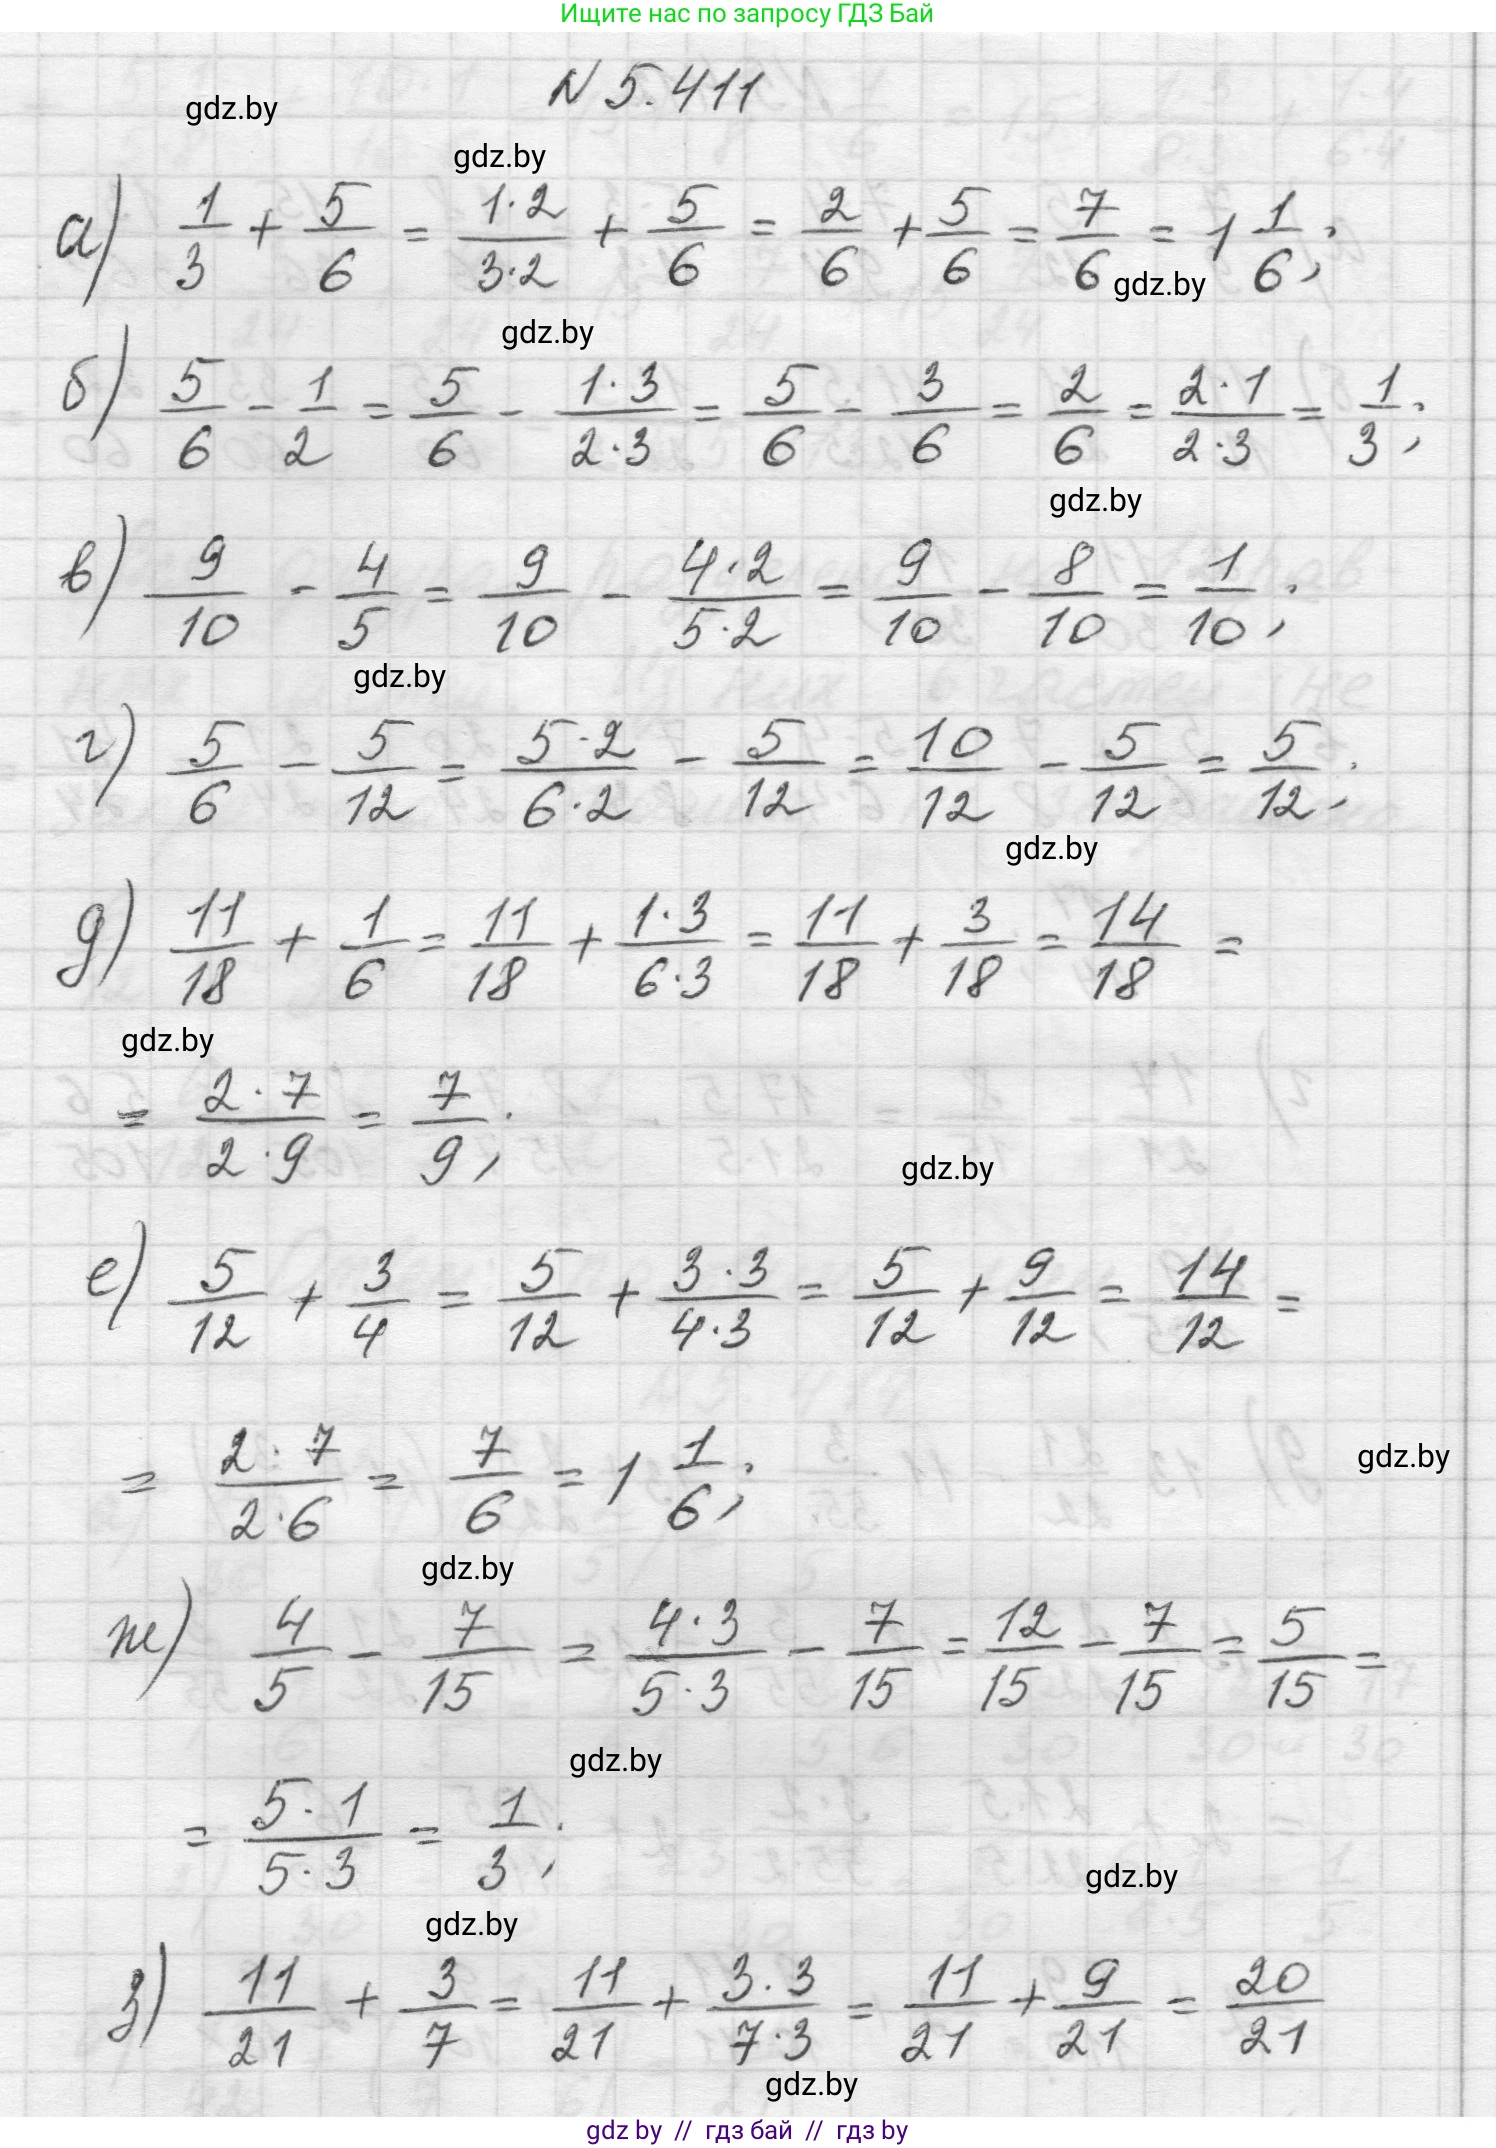 Ищите нас по запросу ГДЗ Бай
N 5.411
gdz.by
gdz.by
а) 1/3 + 5/6 = 1·2/3·2 + 5/6 = 2/6 + 5/6 = 7/6 = 1 1/6;
gdz.by
gdz.by
б) 5/6 - 1/2 = 5/6 - 1·3/2·3 = 5/6 - 3/6 = 2/6 = 2·1/2·3 = 1/3;
gdz.by
в) 9/10 - 4/5 = 9/10 - 4·2/5·2 = 9/10 - 8/10 = 1/10;
gdz.by
г) 5/6 - 5/12 = 5·2/6·2 - 5/12 = 10/12 - 5/12 = 5/12;
gdz.by
д) 11/18 + 1/6 = 11/18 + 1·3/6·3 = 11/18 + 3/18 = 14/18 =
gdz.by
= 2·7/2·9 = 7/9;
gdz.by
е) 5/12 + 3/4 = 5/12 + 3·3/4·3 = 5/12 + 9/12 = 14/12 =
= 2·7/2·6 = 7/6 = 1 1/6;
gdz.by
gdz.by
ж) 4/5 - 7/15 = 4·3/5·3 - 7/15 = 12/15 - 7/15 = 5/15 =
gdz.by
= 5·1/5·3 = 1/3;
gdz.by
gdz.by
з) 11/21 + 3/7 = 11/21 + 3·3/7·3 = 11/21 + 9/21 = 20/21
gdz.by
gdz by // гдз бай // гдз by